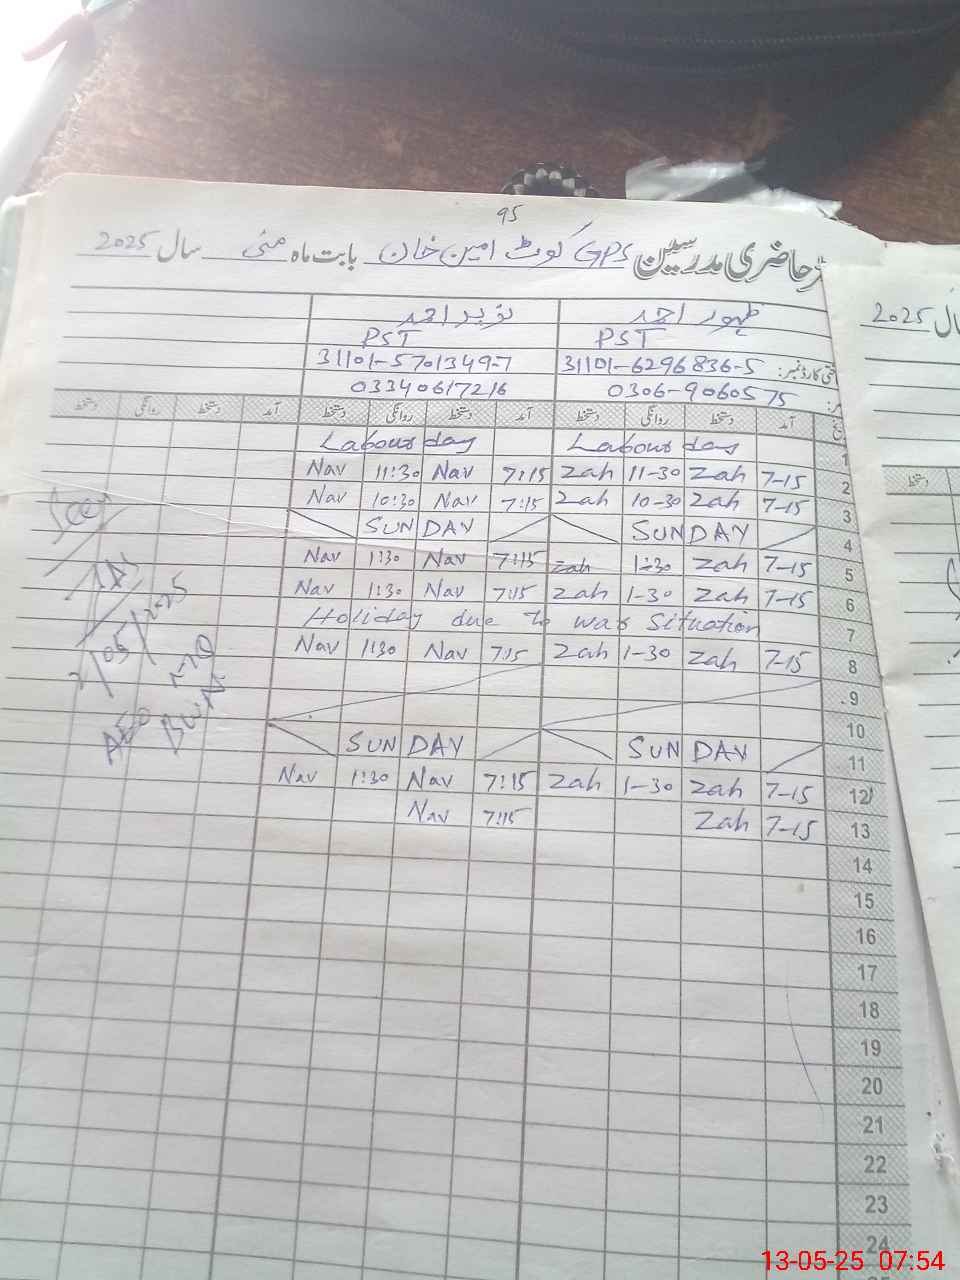 95
حاضری مدرسین GPS کوٹ امین خان بابت ماہ مئی سال 2025
ظہور احمد نوید احمد
PST PST
31101-6296836-5 31101-5701349-7
0306-9060575 03340617216
آمد دستخط روانگی دستخط آمد دستخط روانگی دستخط آمد دستخط روانگی دستخط
Labour day Labour day 1
Nav 11:30 Nav 7:15 Zah 11-30 Zah 7-15 2
Nav 10:30 Nav 7:15 Zah 10-30 Zah 7-15 3
SUNDAY SUNDAY 4
Nav 1:30 Nav 7:15 Zah 1-30 Zah 7-15 5
Nav 1:30 Nav 7:15 Zah 1-30 Zah 7-15 6
Holiday due to war Situation 7
Nav 1:30 Nav 7:15 Zah 1-30 Zah 7-15 8
9
10
SUNDAY SUNDAY 11
Nav 1:30 Nav 7:15 Zah 1-30 Zah 7-15 12
Nav 7:15 Zah 7-15 13
14
15
16
17
18
19
20
21
22
23
24
AEO
BWN
سال 2025
دستخط
13-05-25 07:54